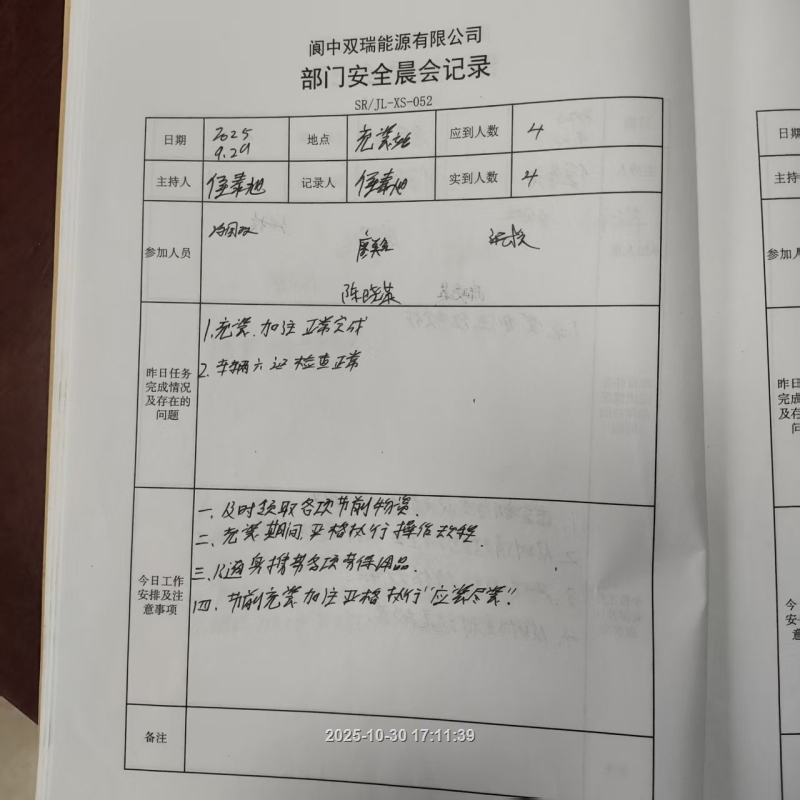 阆中双瑞能源有限公司
部门安全晨会记录
SR/JL-XS-052
日期 2025 9.29 地点 充装站 应到人数 4
主持人 记录人 实到人数 4
参加人员
陈晓
昨日任务完成情况及存在的问题
1.充装.加注正常完成
2.车辆六证检查正常
今日工作安排及注意事项
一、及时领取各项节前物资.
二、充装期间,严格执行操作规程.
三、随身携带各项劳保用品.
四、节前充装加注严格执行"应装尽装"!
备注
2025-10-30 17:11:39
日期
主持
参加人
昨日
完成
及存
问
今
安
意
备